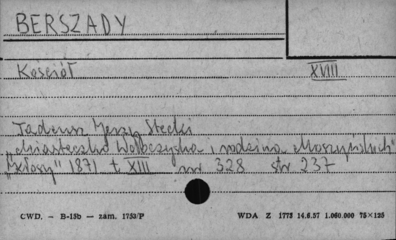 BERSZADY
Kościół XVIII
Tadeusz Jerzy Stecki
„Miasteczko Wołoczyska i rodzina Moszyńskich"
„Kłosy" 1871 t XIII nr 328 str 237
CWD. - B-15b - zam. 1753/P WDA Z 1775 14.6.57 1.060.000 75×125